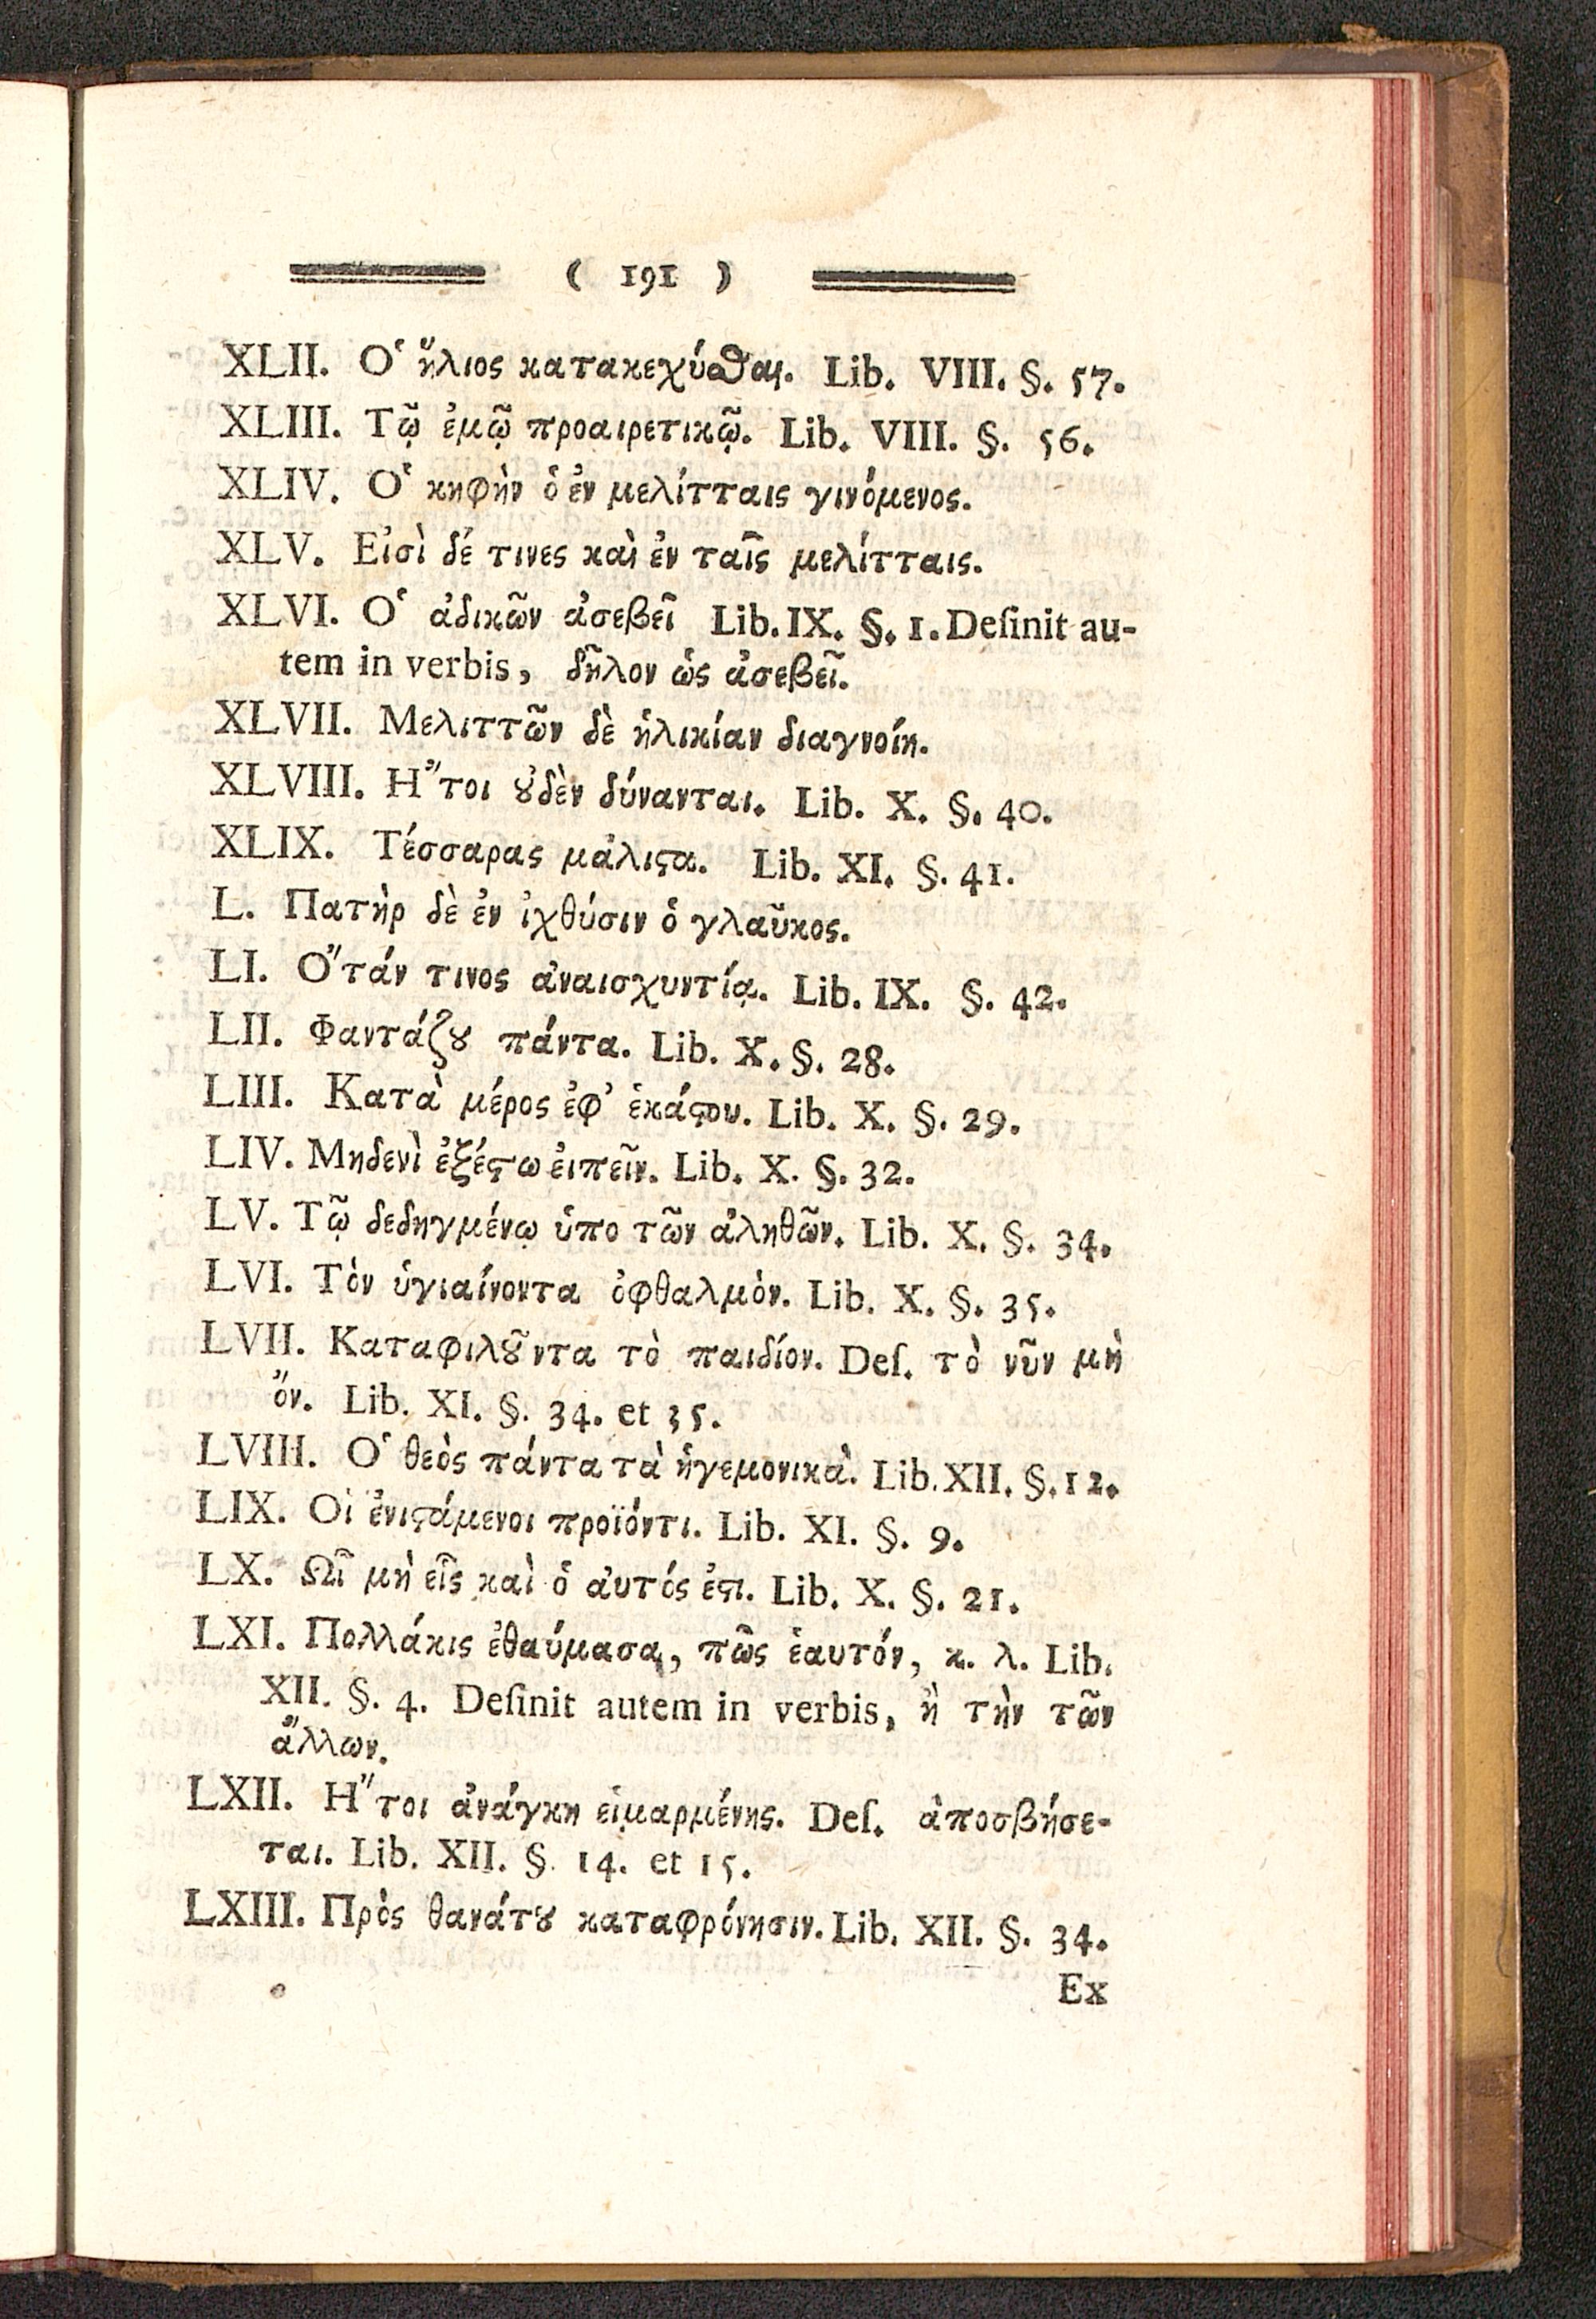 ( 191 )
XLII. Ὁ ἥλιος κατακεχύσθαι. Lib. VIII. §. 57.
XLIII. Τῷ ἐμῷ προαιρετικῷ. Lib. VIII. §. 56.
XLIV. Ὁ κηφὴν ὁ ἐν μελίτταις γινόμενος.
XLV. Εἰσὶ δέ τινες καὶ ἐν ταῖς μελίτταις.
XLVI. Ὁ ἀδικῶν ἀσεβεῖ Lib. IX. §. 1. Deſinit au-
tem in verbis, δῆλον ὡς ἀσεβεῖ.
XLVII. Μελιττῶν δὲ ἡλικίαν διαγνοίη.
XLVIII. Ἤτοι ȣ̓δὲν δύνανται. Lib. X. §. 40.
XLIX. Τέσσαρας μάλιϛα. Lib. XI. §. 41.
L. Πατὴρ δὲ ἐν ἰχθύσιν ὁ γλαῦκος.
LI. Ὅτάν τινος ἀναισχυντίᾳ. Lib. IX. §. 42.
LII. Φαντάζȣ πάντα. Lib. X. §. 28.
LIII. Κατὰ μέρος ἐφ' ἑκάϛου. Lib. X. §. 29.
LIV. Μηδενὶ ἐξέϛω ἐιπεῖν. Lib. X. §. 32.
LV. Τῷ δεδηγμένῳ ὑπο τῶν ἀληθῶν. Lib. X. §. 34.
LVI. Τὸν ὑγιαίνοντα ὀφθαλμὸν. Lib. X. §. 35.
LVII. Καταφιλȣ͂ντα τὸ παιδίον. Deſ. τὸ νῦν μὴ
ὄν. Lib. XI. §. 34. et 35.
LVIII. Ὁ θεὸς πάντα τὰ ἡγεμονικὰ. Lib. XII. §. 12.
LIX. Οἱ ἐνιϛάμενοι προϊόντι. Lib. XI. §. 9.
LX. Ωἷ μὴ εἷς καὶ ὁ ἀυτός ἐϛι. Lib. X. §. 21.
LXI. Πολλάκις ἐθαύμασα, πῶς ἑαυτόν, κ. λ. Lib.
XII. §. 4. Deſinit autem in verbis, ἢ τὴν τῶν
ἄλλων.
LXII. Ἤτοι ἀνάγκη εἱμαρμένης. Deſ. ἀποσβήσε-
ται. Lib. XII. §. 14. et 15.
LXIII. Πρὸς θανάτȣ καταφρόνησιν. Lib. XII. §. 34.
Ex